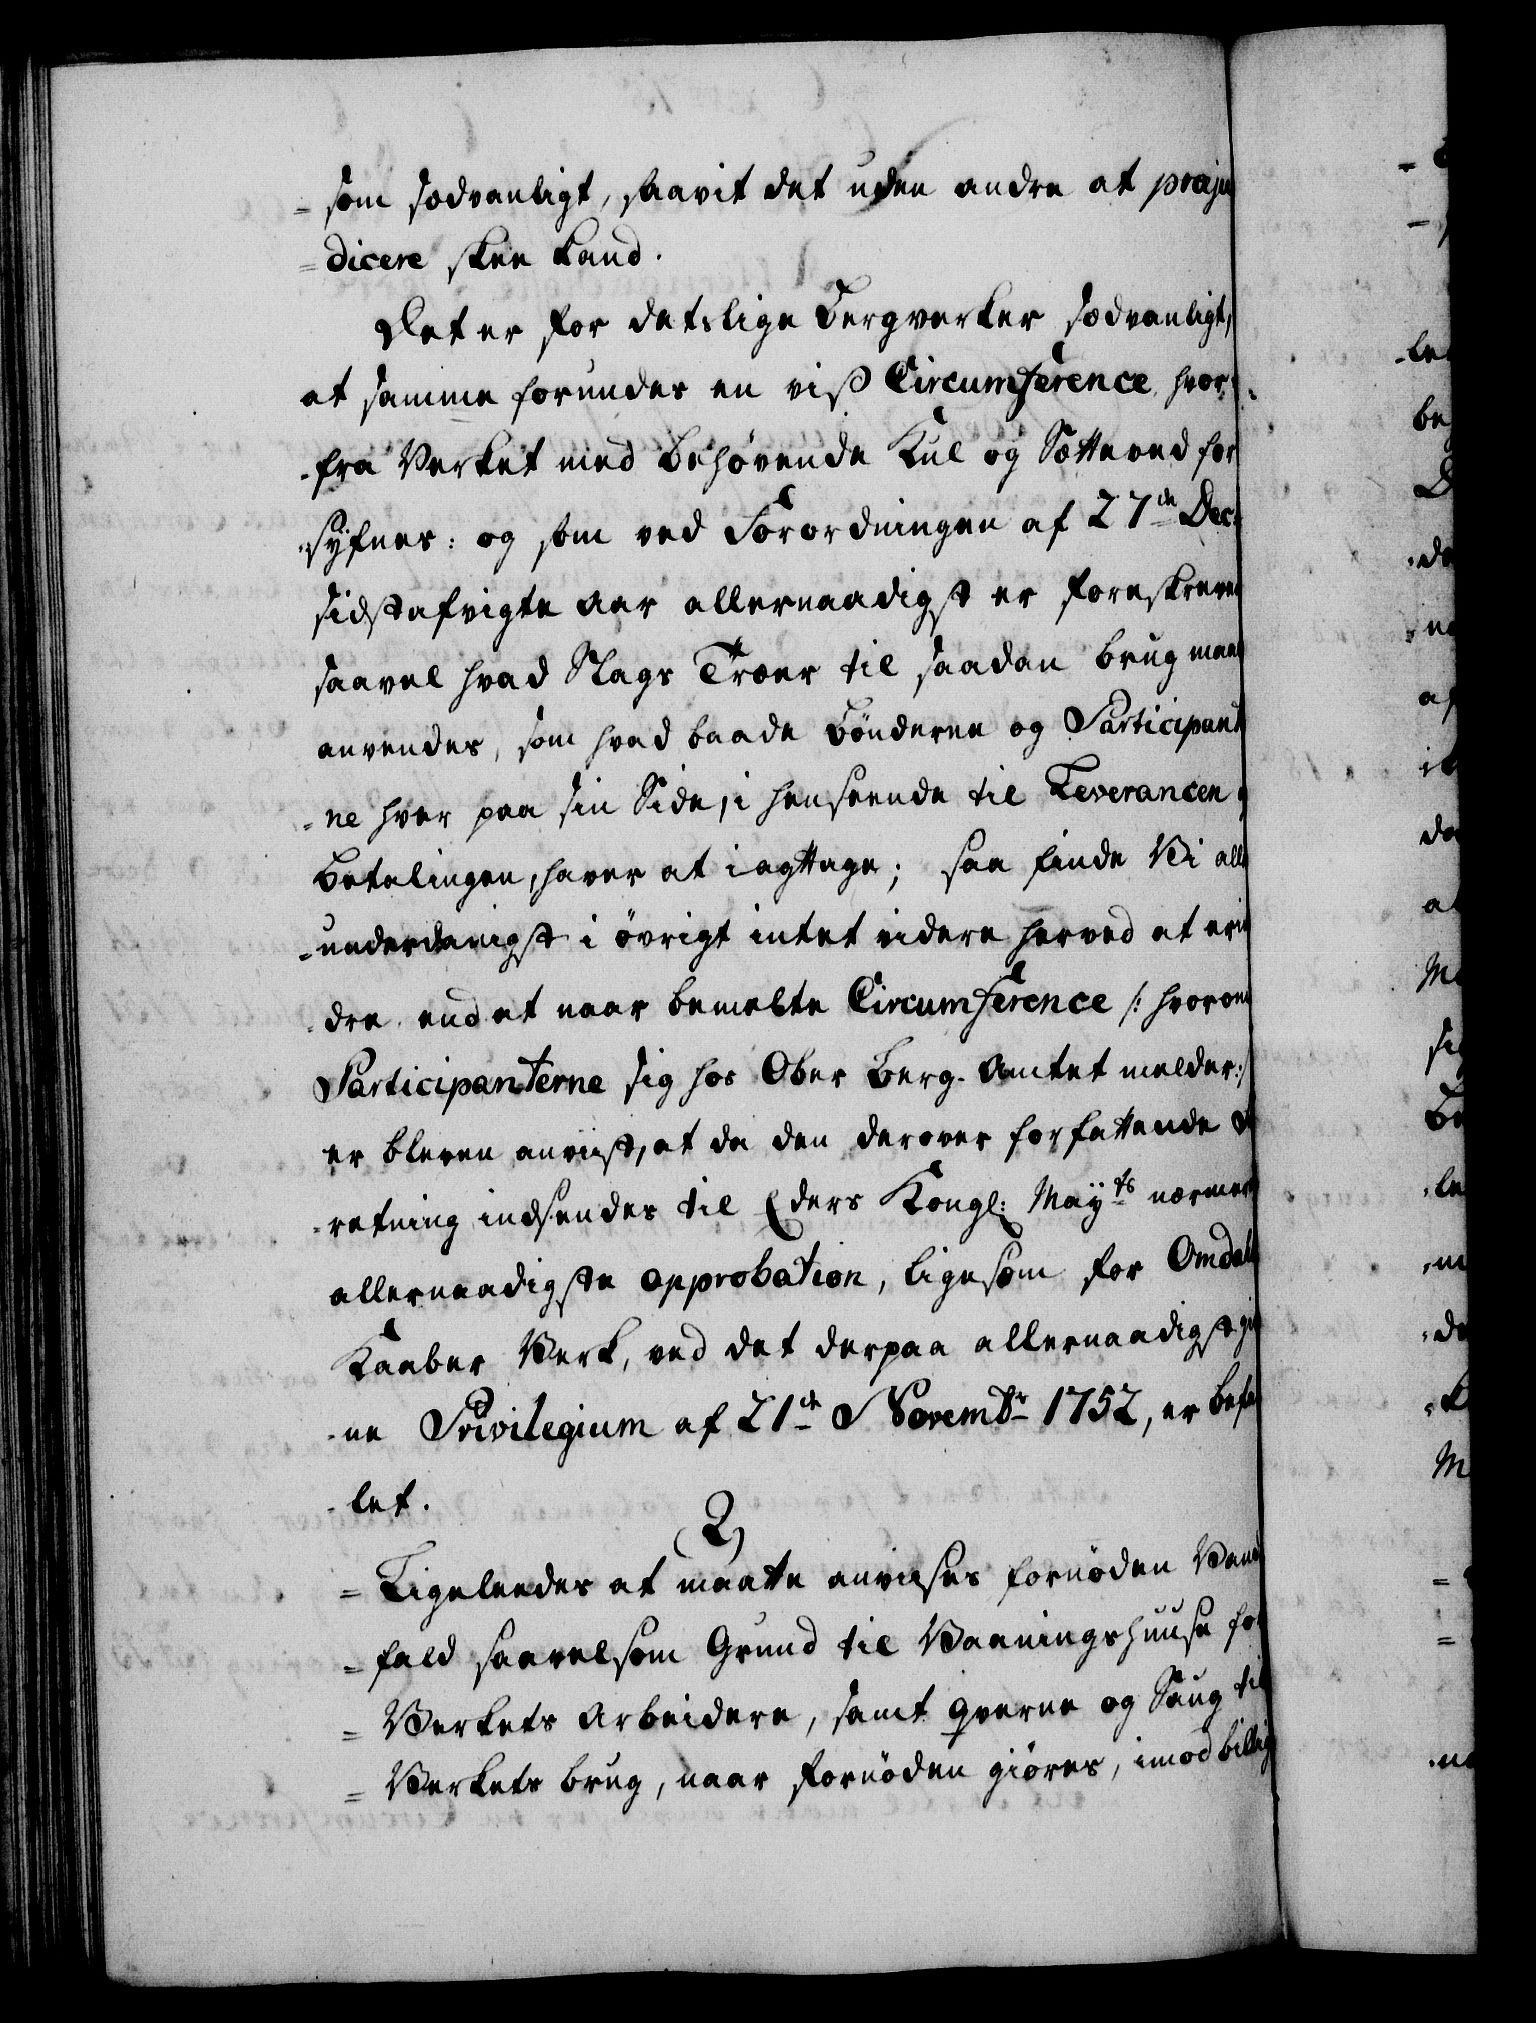 = som sædvanligt, saavit det uden andre at præju
= dicere skee kand.
Det er for detslige Bergverker sædvanligt,
at samme forundes en viss Circumference, hvor-
- fra Verket med behøvende Kul og Sætteved for
- syfnes: og som ved Forordningen af 27de Dec:
sidstafvigte Aar allernaadigst er foreskreve
saavel hvad Slags Træer til saadan brug maae
anvendes, som hvad baade Bønderne og Participant
= ne hver paa sin Side, i henseende til Leverancen
Betalingen, haver at iagttage; saa finde Vi alle
= underdanigst i øvrigt intet videre herved at erin
- dre end at naar bemelte Circumference /: hvorom
Participanterne sig hos Ober Berg-Amtet melder:/
er bleven anviist, at da den derover forfattende
- retning indsendes til Eders Kongl: Mayts nærmer
allernaadigste approbation, ligesom for Omdals
Kaaber Verk, ved det derpaa allernaadigst giv
- ne Privilegium af 21de Novembr 1752, er befa
- let.
2)
= Ligeleedes at maatte anviises fornøden Vand
= fald saavelsom Grund til Vaaningshuuse for
= Verkets Arbeidere, samt Qverne og Saug til
= Verkets brug, naar fornøden giøres, imod billig